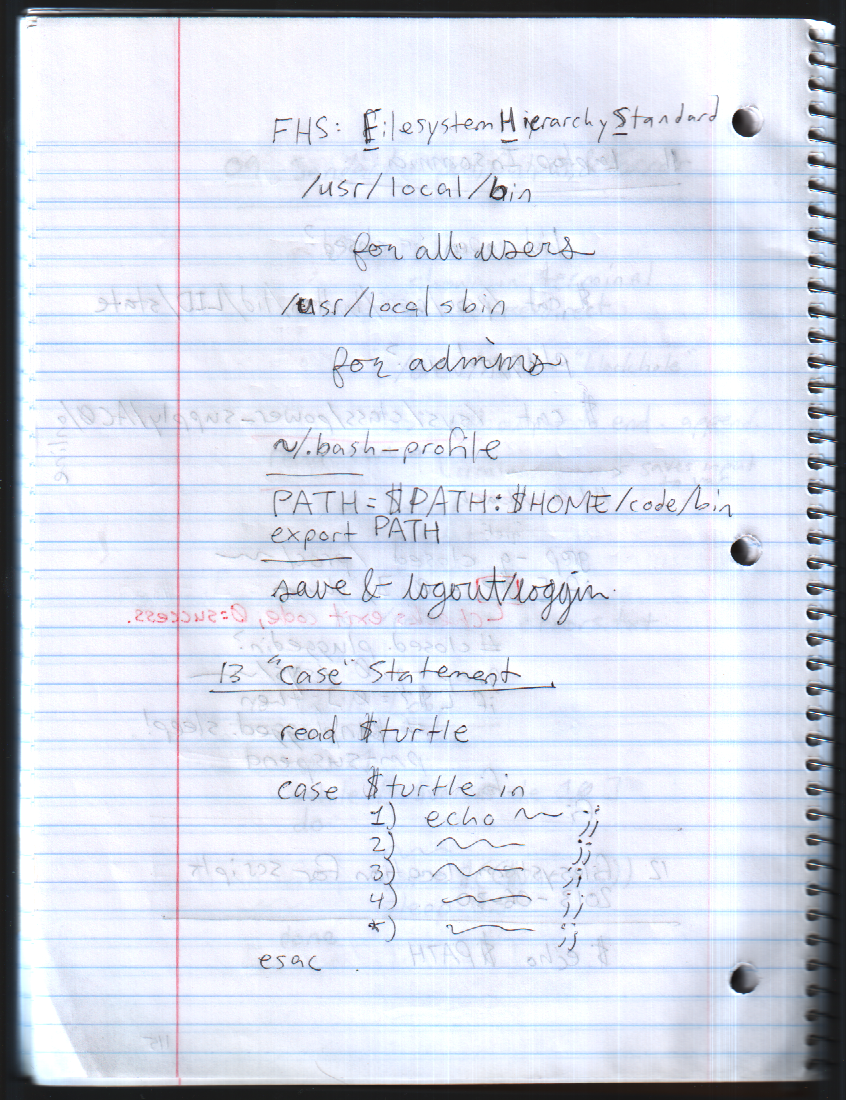 FHS: Filesystem Hierarchy Standard
/usr/local/bin
for all users
/usr/local sbin
for admins
~/.bash_profile
PATH=$PATH:$HOME/code/bin
export PATH
save & logout/loggin.
13 "Case" Statement
read $turtle
case $turtle in
1) echo ~~ ;;
2) ~~ ;;
3) ~~ ;;
4) ~~ ;;
*) ~~ ;;
esac